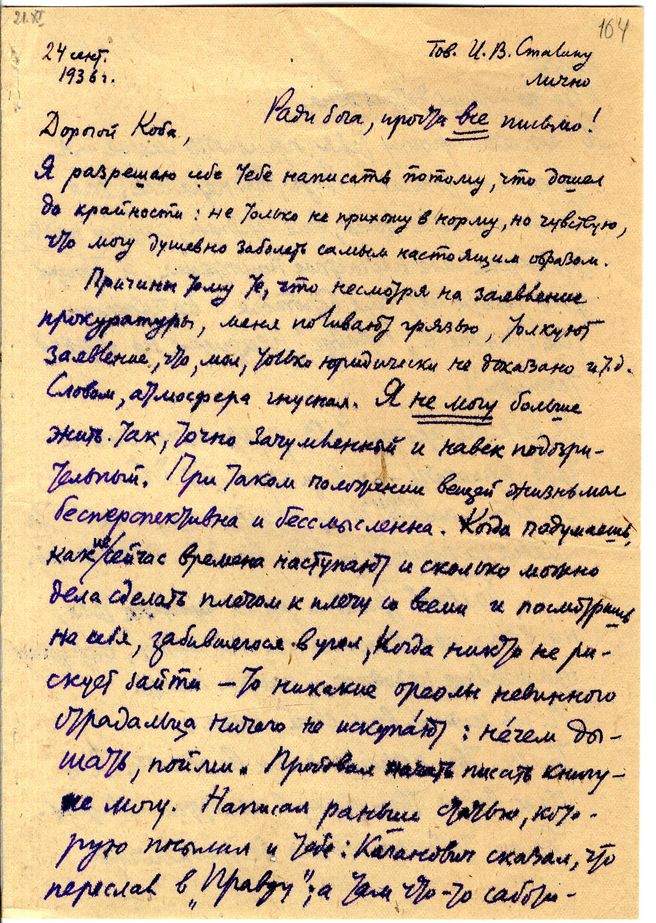 21.XI
164
24 сент.
1936 г.
Тов. И. В. Сталину
лично
Ради бога, прочти все письмо!
Дорогой Коба,
Я разрешаю себе тебе написать потому, что дошел
до крайности: не только не прихожу в норму, но чувствую,
что могу душевно заболеть самым настоящим образом.
Причины тому те, что несмотря на заявление
прокуратуры, меня поливают грязью, толкуют
заявление, что, мол, только юридически не доказано и т.д.
Словом, атмосфера гнусная. Я не могу больше
жить так, точно зачумленный и навек подозри-
тельный. При таком положении вещей жизнь моя
бесперспективна и бессмысленна. Когда подумаешь,
какие сейчас времена наступают и сколько можно
дела сделать плечом к плечу со всеми и посмотришь
на себя, забившегося в угол, когда никто не ри-
скует зайти — то никакие ореолы невинного
страдальца ничего не искупают: нечем ды-
шать, пойми. Пробовал писать книгу –
не могу. Написал раньше статью, кото-
рую посылал и тебе: Каганович сказал, что
переслал в „Правду"; а там что-то саботи-